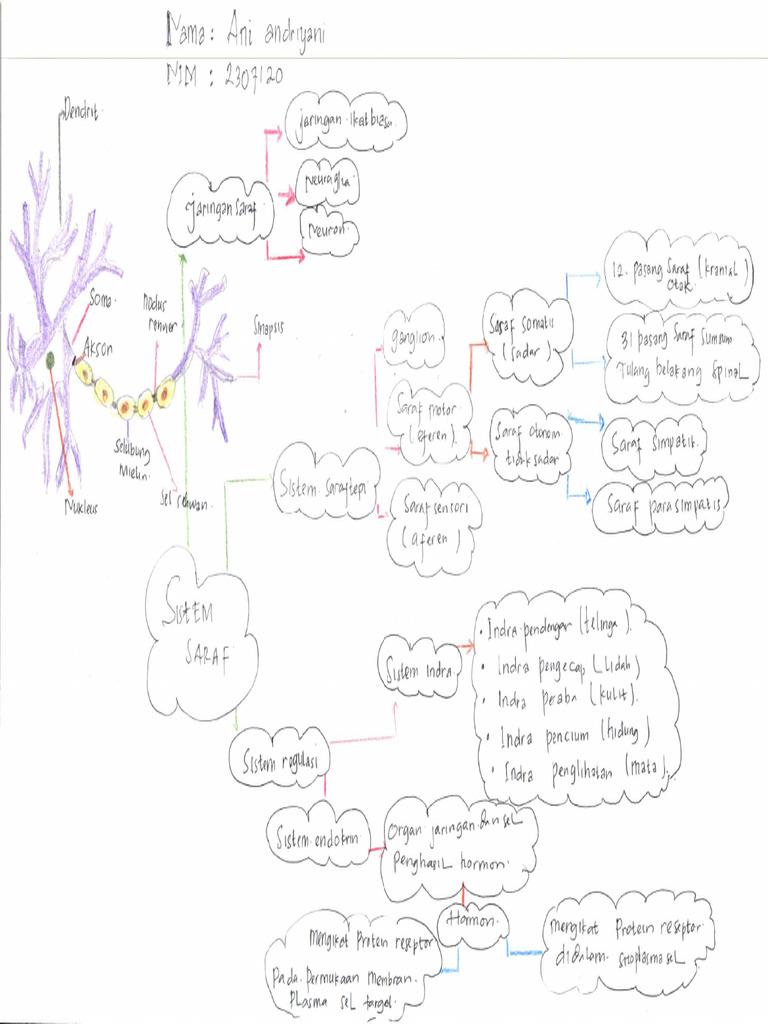 Nama : Ani andriyani
NIM : 2307120
Dendrit
Soma
Akson
nodus
renvier
Sinapsis
Selubung
Mielin
Sel schwan
Nucleus
Jaringan saraf
jaringan ikat biasa
Neuroglia
Neuron
SistEM
SARAF
Sistem saraf tepi
ganglion
Saraf motor
(eferen)
Saraf sensori
(aferen)
Saraf somatis
(sadar)
Saraf otonom
tidak sadar
12. pasang Saraf (kranial)
otak
31 pasang Saraf Sumsum
Tulang belakang Spinal
Saraf Simpatik
Saraf parasimpatis
Sistem regulasi
Sistem indra
• Indra pendengar (telinga)
• Indra pengecap (Lidah)
• Indra peraba (kulit)
• Indra pencium (hidung)
• Indra penglihatan (mata)
Sistem endokrin
Organ jaringan dan sel
Penghasil hormon
Hormon
mengikat Protein reseptor
Pada permukaan membran
Plasma sel target
mengikat Protein reseptor
didalam sitoplasma sel